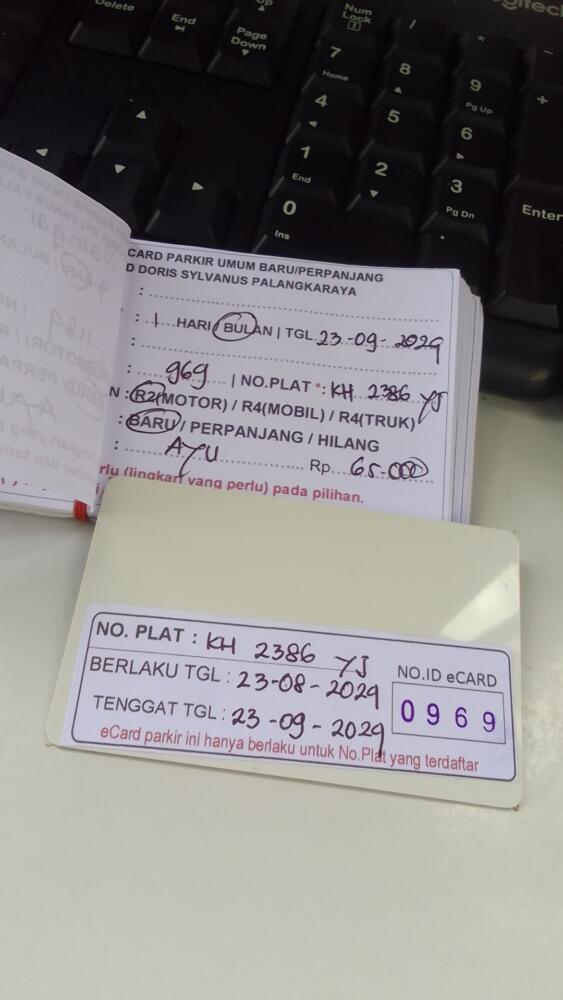 Delete
End
Page Down
Num Lock
/
*
-
7 Home
8
9 Pg Up
+
4
5
6
1 End
2
3 Pg Dn
Enter
0 Ins
.
CARD PARKIR UMUM BARU/PERPANJANG
D DORIS SYLVANUS PALANGKARAYA
:
: 1 HARI / BULAN | TGL 23-09-2029
:
: 969 | NO.PLAT *: KH 2386 YJ
N : R2(MOTOR) / R4(MOBIL) / R4(TRUK)
: BARU / PERPANJANG / HILANG
: AYU Rp 65.000
rlu (lingkari yang perlu) pada pilihan.
NO. PLAT : KH 2386 YJ
BERLAKU TGL : 23-08-2029
TENGGAT TGL : 23-09-2029
NO.ID eCARD
0969
eCard parkir ini hanya berlaku untuk No.Plat yang terdaftar